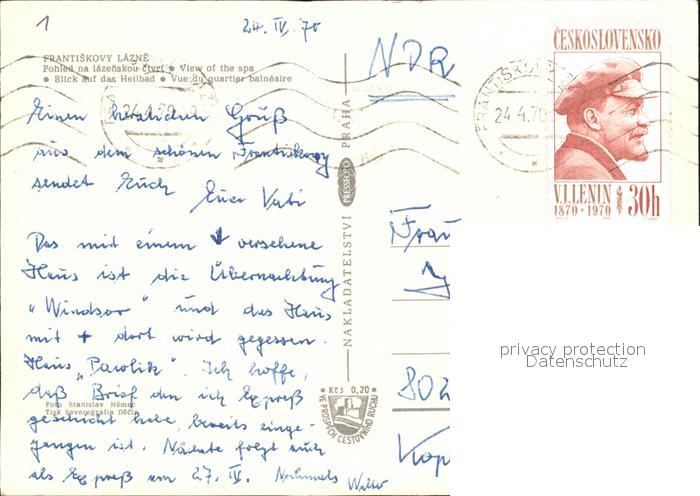 1
24. IV. 70
FRANTIŠKOVY LÁZNĚ
Pohled na lázeňskou čtvrť • View of the spa
• Blick auf das Heilbad • Vue du quartier balnéaire
Einen herzlichen Gruß
aus dem schönen
sendet Euch
Euer Vati
Das mit einem ↓ versehene
Haus ist die Übernachtung
"Windsor" und das Haus
mit + dort wird gegessen.
Haus "Pawlik". Ich hoffe,
daß Brief den ich Expreß
geschickt habe, bereits einge-
gangen ist. Nächste folgt auch
als Expreß am 27. IV. Nochmals
Foto Stanislav Němec
Tisk Severografia Děčín
NAKLADATELSTVÍ PRESSFOTO PRAHA
Kčs 0,20
VE PROSPĚCH CESTOVNÍHO RUCHU
NDR
Frau
802
24.4.70
24.4.70
ČESKOSLOVENSKO
V.I.LENIN
1870 • 1970
30h
privacy protection
Datenschutz